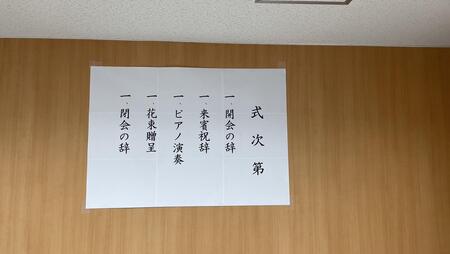 式次第
一、開会の辞
一、来賓祝辞
一、ピアノ演奏
一、花束贈呈
一、閉会の辞